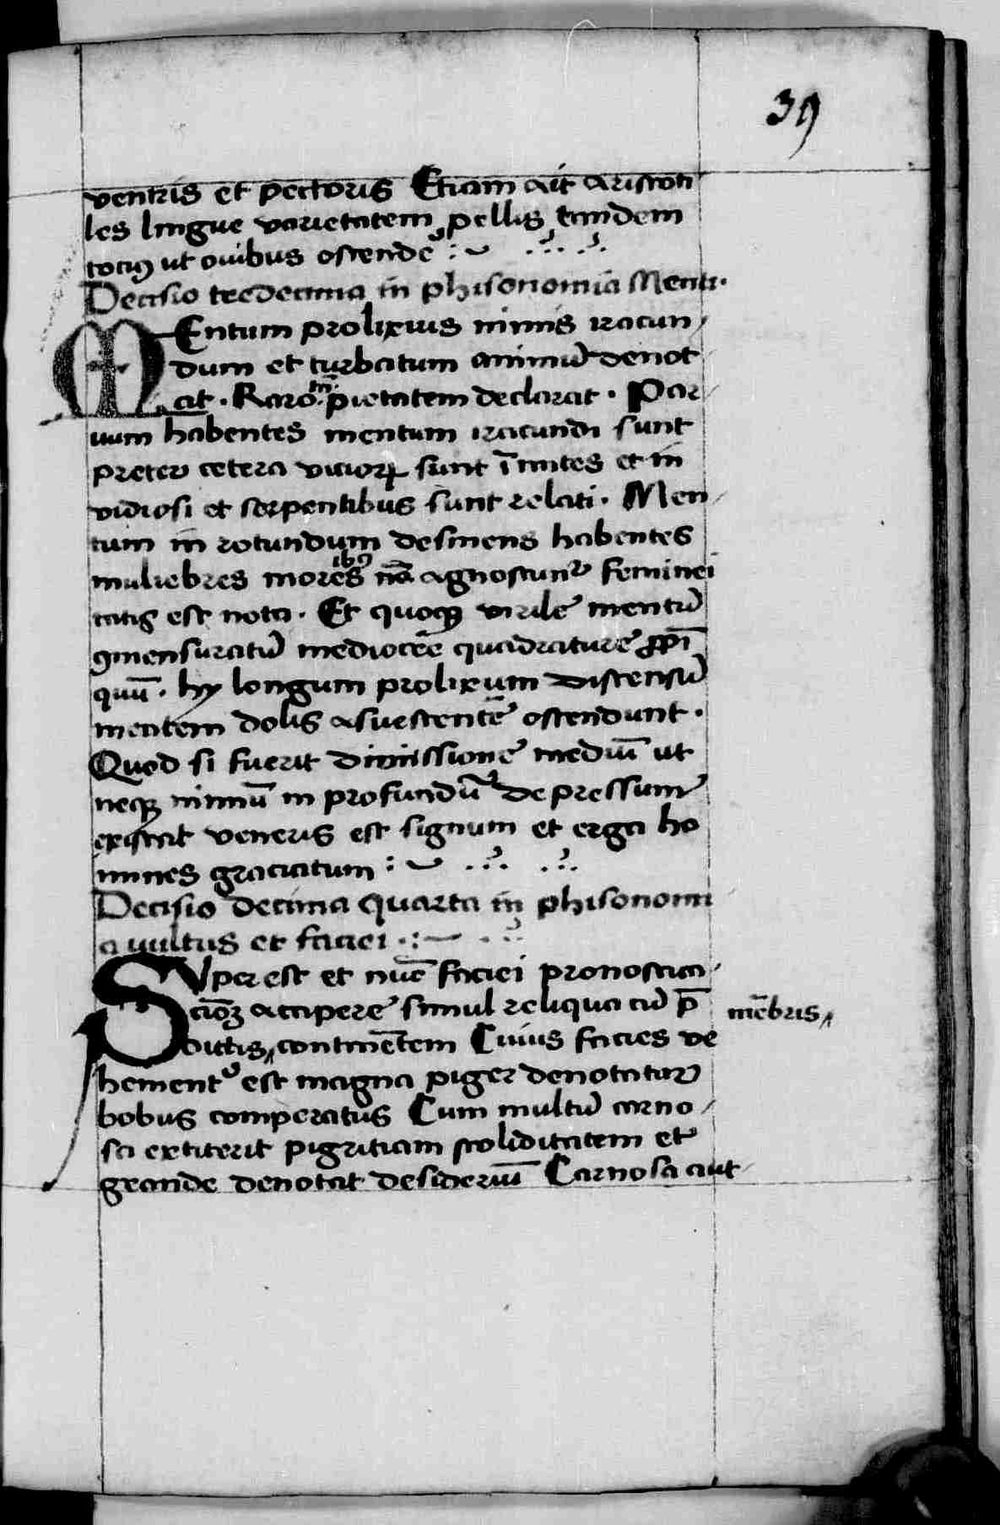 39
ventris et pectoris Etiam ait Aristoti
les lingue varietatem pellis tandem
tociꝰ ut ouibus ostende
Decisio tredecima in phisonomia Menti.
MEntum prolixius nimis iracun
dum et turbatum animū denot
at. Raro tn̄ pietatem declarat. Par
uum habentes mentum iracundi sunt
preter cetera vicioꝝ sunt īmites et in
vidiosi et serpentibus sunt relati. Men
tum in rotundum desinens habentes
muliebres mores ibꝰ nā agnoscunt feminei
tatis est nota. Et quoqꝫ virile mentū
ꝯmensuratū mediocre quadrature ꝓpī
quū. hy longum prolixum discensū
mentem dolis asuescentē ostendunt.
Quod si fuerit dimissione mediū ut
neqꝫ nimiū in profundū depressum
existat veneris est signum et erga ho
mines graciatum
Decisio decima quarta in phisonomi
a vultus et faciei
SVperest et nūc faciei pronostica
cioꝫ accipere simul reliqua cū p̄
dictis continētem Cuius facies ve
mēbris
hementꝰ est magna piger denotatur
bobus comperatus Cum multū carno
sa extiterit pigritiam stoliditatem et
grande denotat desideriū Carnosa aut